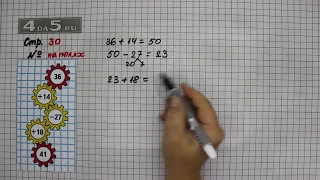 4DA5.RU
Стр. 30
№ на полях
36 + 14 = 50
50 - 27 = 23
20 7
23 + 18 =
36
+14
-27
+18
41